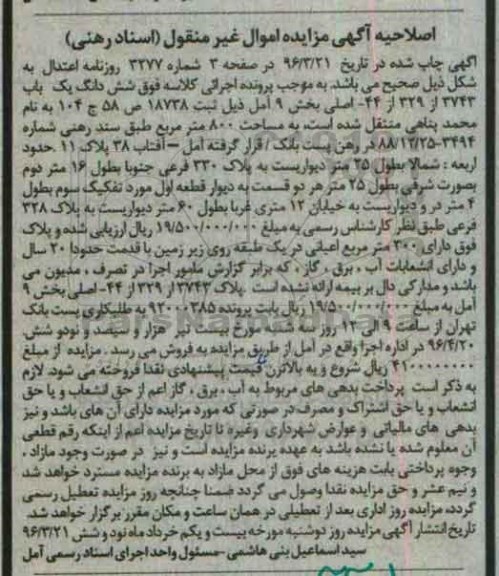 اصلاحیه آگهی مزایده اموال غیر منقول (اسناد رهنی)
آگهی چاپ شده در تاریخ ۹۶/۳/۲۱ در صفحه ۳ شماره ۳۲۷۷ روزنامه اعتدال به
شکل ذیل صحیح می باشد. به موجب پرونده اجرائی کلاسه فوق شش دانگ یک باب
۳۷۴۳ از ۳۲۹ از ۴۴- اصلی بخش ۹ آمل ذیل ثبت ۱۸۷۳۸ ص ۵۸ ج ۱۰۴ به نام
محمد پناهی منتقل شده است، به مساحت ۸۰۰ متر مربع طبق سند رهنی شماره
۸۸/۱۲/۲۵-۳۴۹۴ در رهن پست بانک / قرار گرفته آمل – آفتاب ۳۸ پلاک ۱۱ .حدود
اربعه : شمالا بطول ۲۵ متر دیواریست به پلاک ۳۳۰ فرعی جنوبا بطول ۱۶ متر دوم
بصورت شرقی بطول ۲۵ متر هر دو قسمت به دیوار قطعه اول مورد تفکیک سوم بطول
۴ متر در و دیواریست به خیابان ۱۲ متری غربا بطول ۶۰ متر دیواریست به پلاک ۳۲۸
فرعی طبق نظر کارشناس رسمی به مبلغ ۱۹/۵۰۰/۰۰۰/۰۰۰ ریال ارزیابی شده و پلاک
فوق دارای ۳۰۰ متر مربع اعیانی در یک طبقه روی زیر زمین با قدمت حدودا ۲۰ سال
و دارای انشعابات آب ، برق ، گاز ، که برابر گزارش مامور اجرا در تصرف ، مدیون می
باشد و مدارکی دال بر بیمه ارائه نشده است .پلاک ۳۷۴۳ از ۳۲۹ از ۴۴- اصلی بخش ۹
آمل به مبلغ ۱۹/۵۰۰/۰۰۰/۰۰۰ ریال بابت پرونده ۹۲۰۰۰۳۸۵ به طلبکاری پست بانک
تهران از ساعت ۹ الی ۱۲ روز سه شنبه مورخ بیست تیر هزار و سیصد و نودو شش.
۹۶/۴/۲۰ در اداره اجرا واقع در آمل از طریق مزایده به فروش می رسد . مزایده از مبلغ
ریال شروع و به بالاترین قیمت پیشنهادی نقدا فروخته می شود. لازم
به ذکر است پرداخت بدهی های مربوط به آب ، برق ، گاز اعم از حق انشعاب و یا حق
انشعاب و یا حق اشتراک و مصرف در صورتی که مورد مزایده دارای آن های باشد و نیز
بدهی های مالیاتی و عوارض شهرداری وغیره تا تاریخ مزایده اعم از اینکه رقم قطعی
آن معلوم شده یا نشده باشد به عهده برنده مزایده است و نیز در صورت وجود مازاد ،
وجوه پرداختی بابت هزینه های فوق از محل مازاد به برنده مزایده مسترد خواهد شد
و نیم عشر و حق مزایده نقدا وصول می گردد ضمنا چنانچه روز مزایده تعطیل رسمی
گردد، مزایده روز اداری بعد از تعطیلی در همان ساعت و مکان مقرر برگزار خواهد شد.
تاریخ انتشار آگهی مزایده روز دوشنبه مورخه بیست و یکم خرداد ماه نود و شش ۹۶/۳/۲۱
سید اسماعیل بنی هاشمی-مسئول واحد اجرای اسناد رسمی آمل